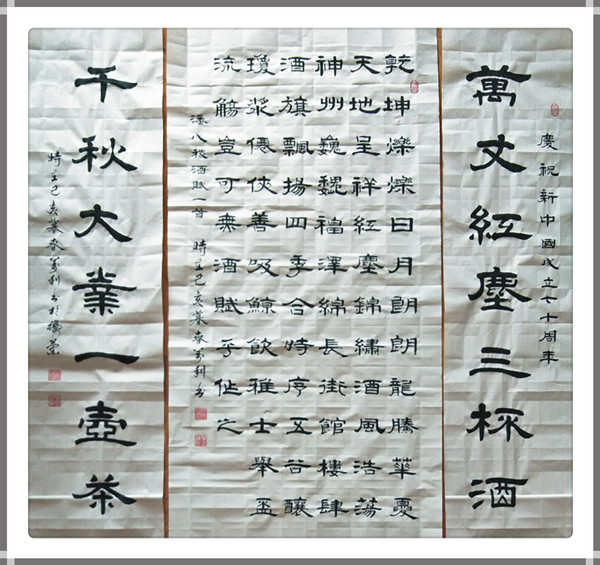 慶祝新中國成立七十周年
萬丈紅塵三杯酒
乾坤爍爍日月朗朗龍騰華夏
天地呈祥紅塵錦繡酒風浩蕩
神州巍巍福澤綿長街館樓肆
酒旗飄揚四季合時序五谷釀
瓊漿僊俠善吸鯨飲雅士舉盃
流觴豈可無酒賦乎作之
酒賦一首 時在己亥暮春萬利書
千秋大業一壺茶
時在己亥暮春萬利書於